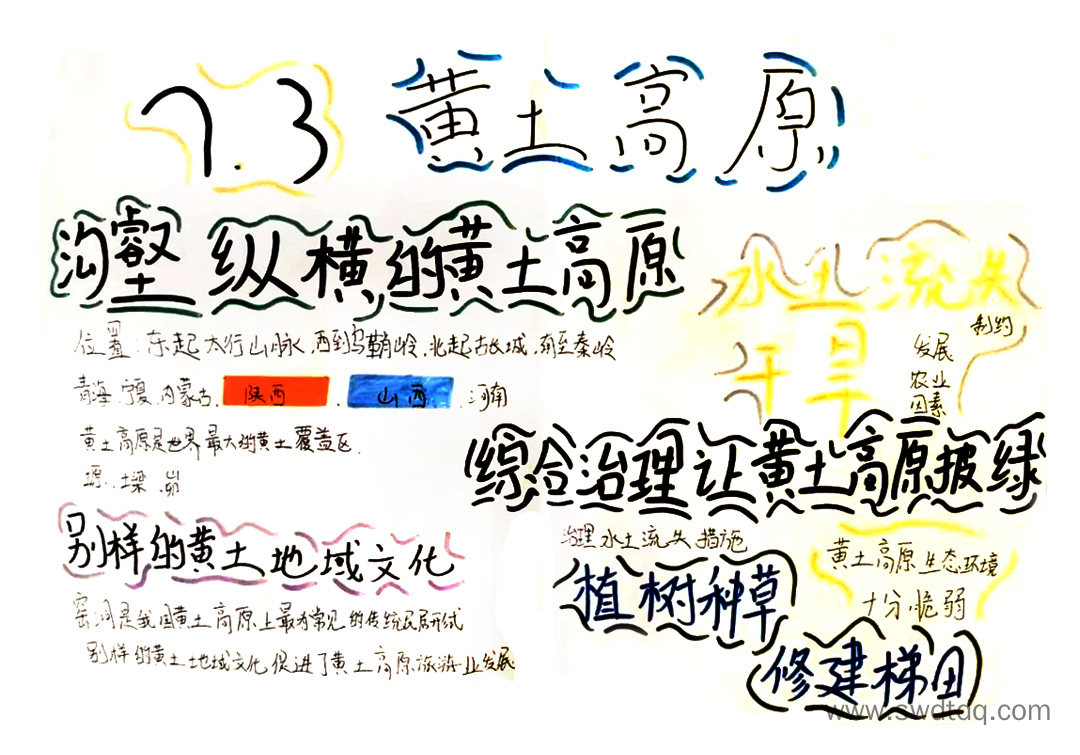 7.3 黄土高原
沟壑纵横的黄土高原
位置:东起太行山脉,西到乌鞘岭,北起古长城,南至秦岭
青海、宁夏、内蒙古、陕西、山西、河南
黄土高原是世界最大的黄土覆盖区
塬、墚、峁
别样的黄土地域文化
窑洞是我国黄土高原上最为常见的传统民居形式
别样的黄土地域文化促进了黄土高原旅游业发展
水土流失
干旱
制约
发展
农业
因素
综合治理让黄土高原披绿
治理水土流失措施
植树种草
修建梯田
黄土高原生态环境
十分脆弱
www.swdtdq.com